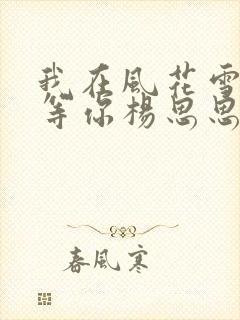 我在風花雪
等你楊思思
春風寒